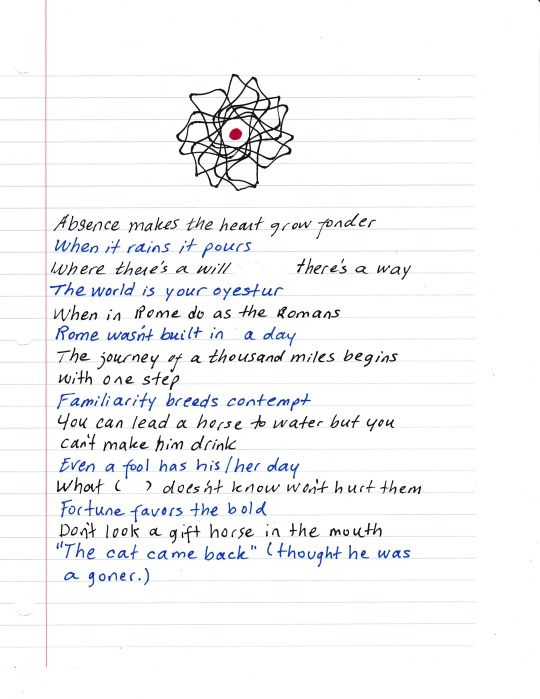 Absence makes the heart grow fonder
When it rains it pours
Where there's a will there's a way
The world is your oyestur
When in Rome do as the Romans
Rome wasn't built in a day
The journey of a thousand miles begins
with one step
Familiarity breeds contempt
You can lead a horse to water but you
can't make him drink
Even a fool has his/her day
What ( ) doesn't know won't hurt them
Fortune favors the bold
Don't look a gift horse in the mouth
"The cat came back" (thought he was
a goner.)